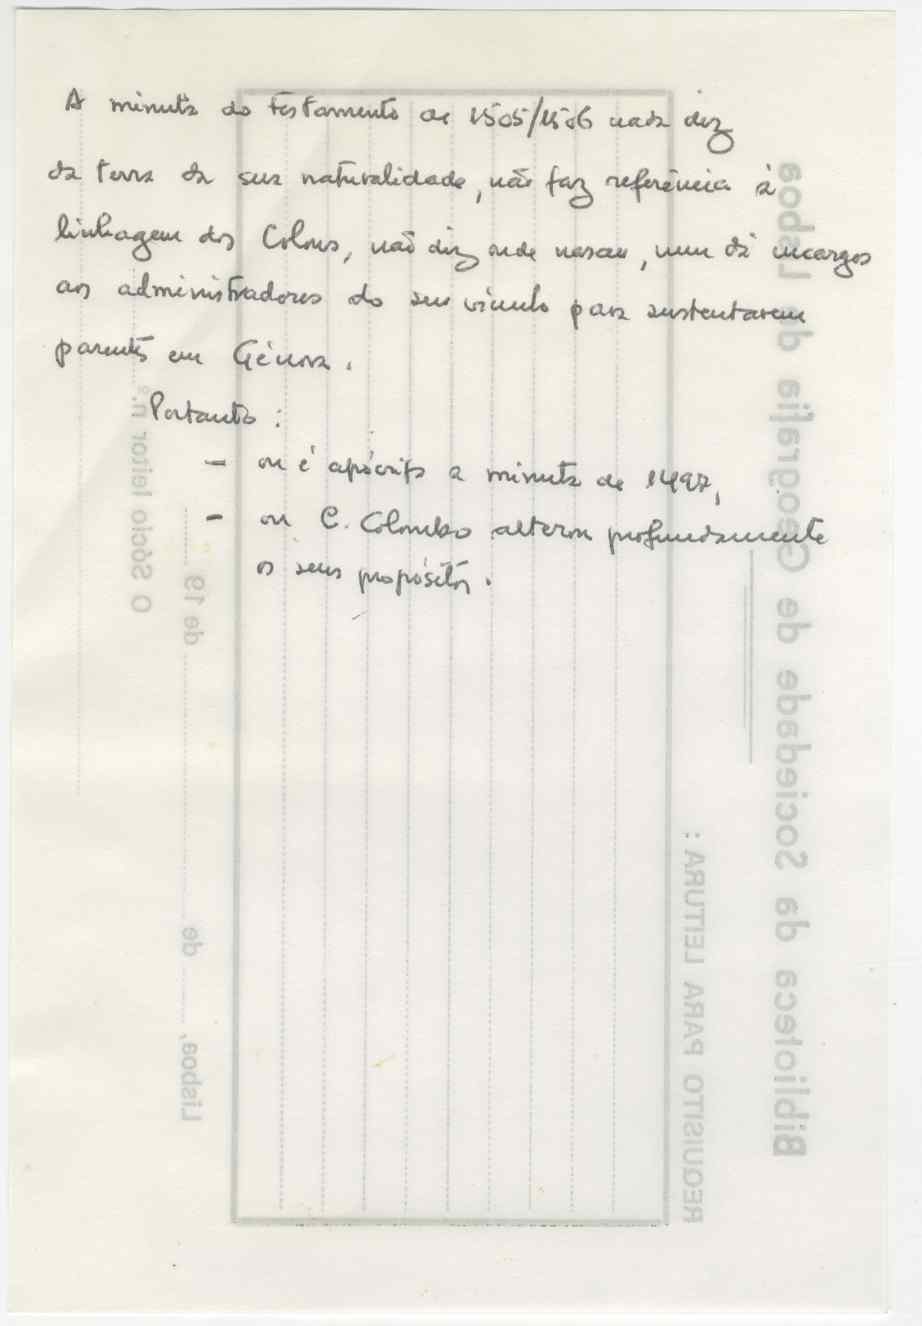 A minuta do testamento de 1505/1506 nada diz
da terra da sua naturalidade, não faz referência à
linhagem dos Colons, não diz onde nasceu, nem dá encargos
aos administradores do seu vínculo para sustentarem
parentes em Génova.
Portanto:
- ou é apócrifa a minuta de 1497,
- ou C. Colombo alterou profundamente
os seus propósitos.
Biblioteca da Sociedade de Geografia de Lisboa
REQUISITO PARA LEITURA:
Lisboa, de de 19
O Sócio leitor n.º